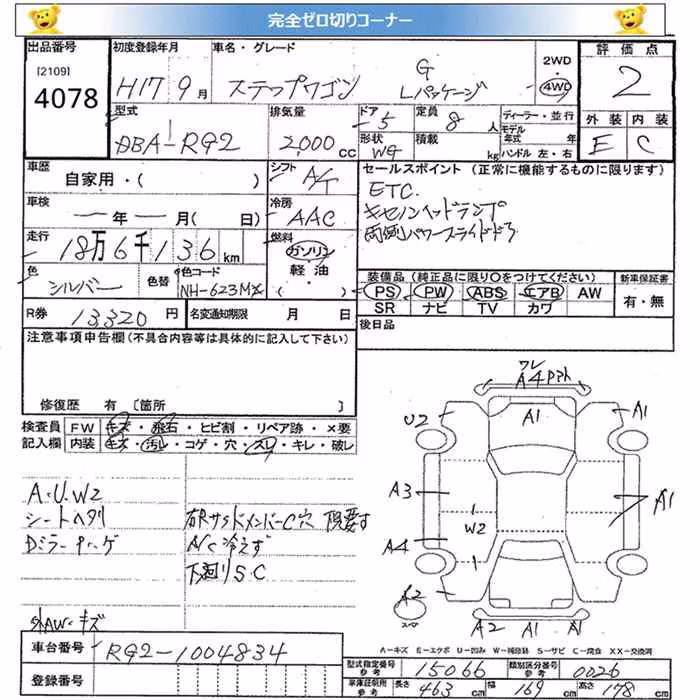 完全ゼロ切りコーナー
出品番号
[2109]
4078
初度登録年月
H17 9月
車名・グレード
ステップワゴン
G
Lパッケージ
2WD
4WD
評価点
2
外装 内装
E C
型式
DBA-RG2
排気量
2,000 cc
ドア
5
形状
WG
定員
8 人
積載
kg
ディーラー・並行
モデル年式 年
ハンドル 左・右
車歴
自家用・( )
シフト
A/T
車検
年 月( 日)
冷房
AAC
走行
18万6千136 km
燃料
ガソリン
軽・油
( )
色
シルバー
色替
色コード
NH-623M
セールスポイント (正常に機能するものに限ります)
ETC.
キセノンヘッドランプ
両側パワースライドドア
装備品 (純正品に限り○をつけてください)
PS PW ABS エアB AW
SR ナビ TV カワ
新車保証書
有・無
R券 13,320 円
名変通期限 月 日
後日品
注意事項申告欄 (不具合内容等は具体的に記入して下さい)
修復歴 有 〔箇所 〕
検査員 FW キズ・飛石・ヒビ割・リペア跡・×要
記入欄 内装 キズ・汚レ・コゲ・穴・スレ・キレ・破レ
A・U・W2
シートヘタリ
Dミラー
外AWキズ
右RサイドメンバーC穴 現要す
A/C冷えず
下廻りS・C
ワレ
A4
U2 A1 A1
A3
A1
W2
A4
A2
A2 A1 A1
A-キズ E-エクボ U-凹み W-補修跡 S-サビ C-腐食 XX-交換済
車台番号
RG2-1004834
登録番号
型式指定番号
15066
類別区分番号
0026
車庫証明用
参考
長さ 463 cm 幅 169 cm 高さ 178 cm